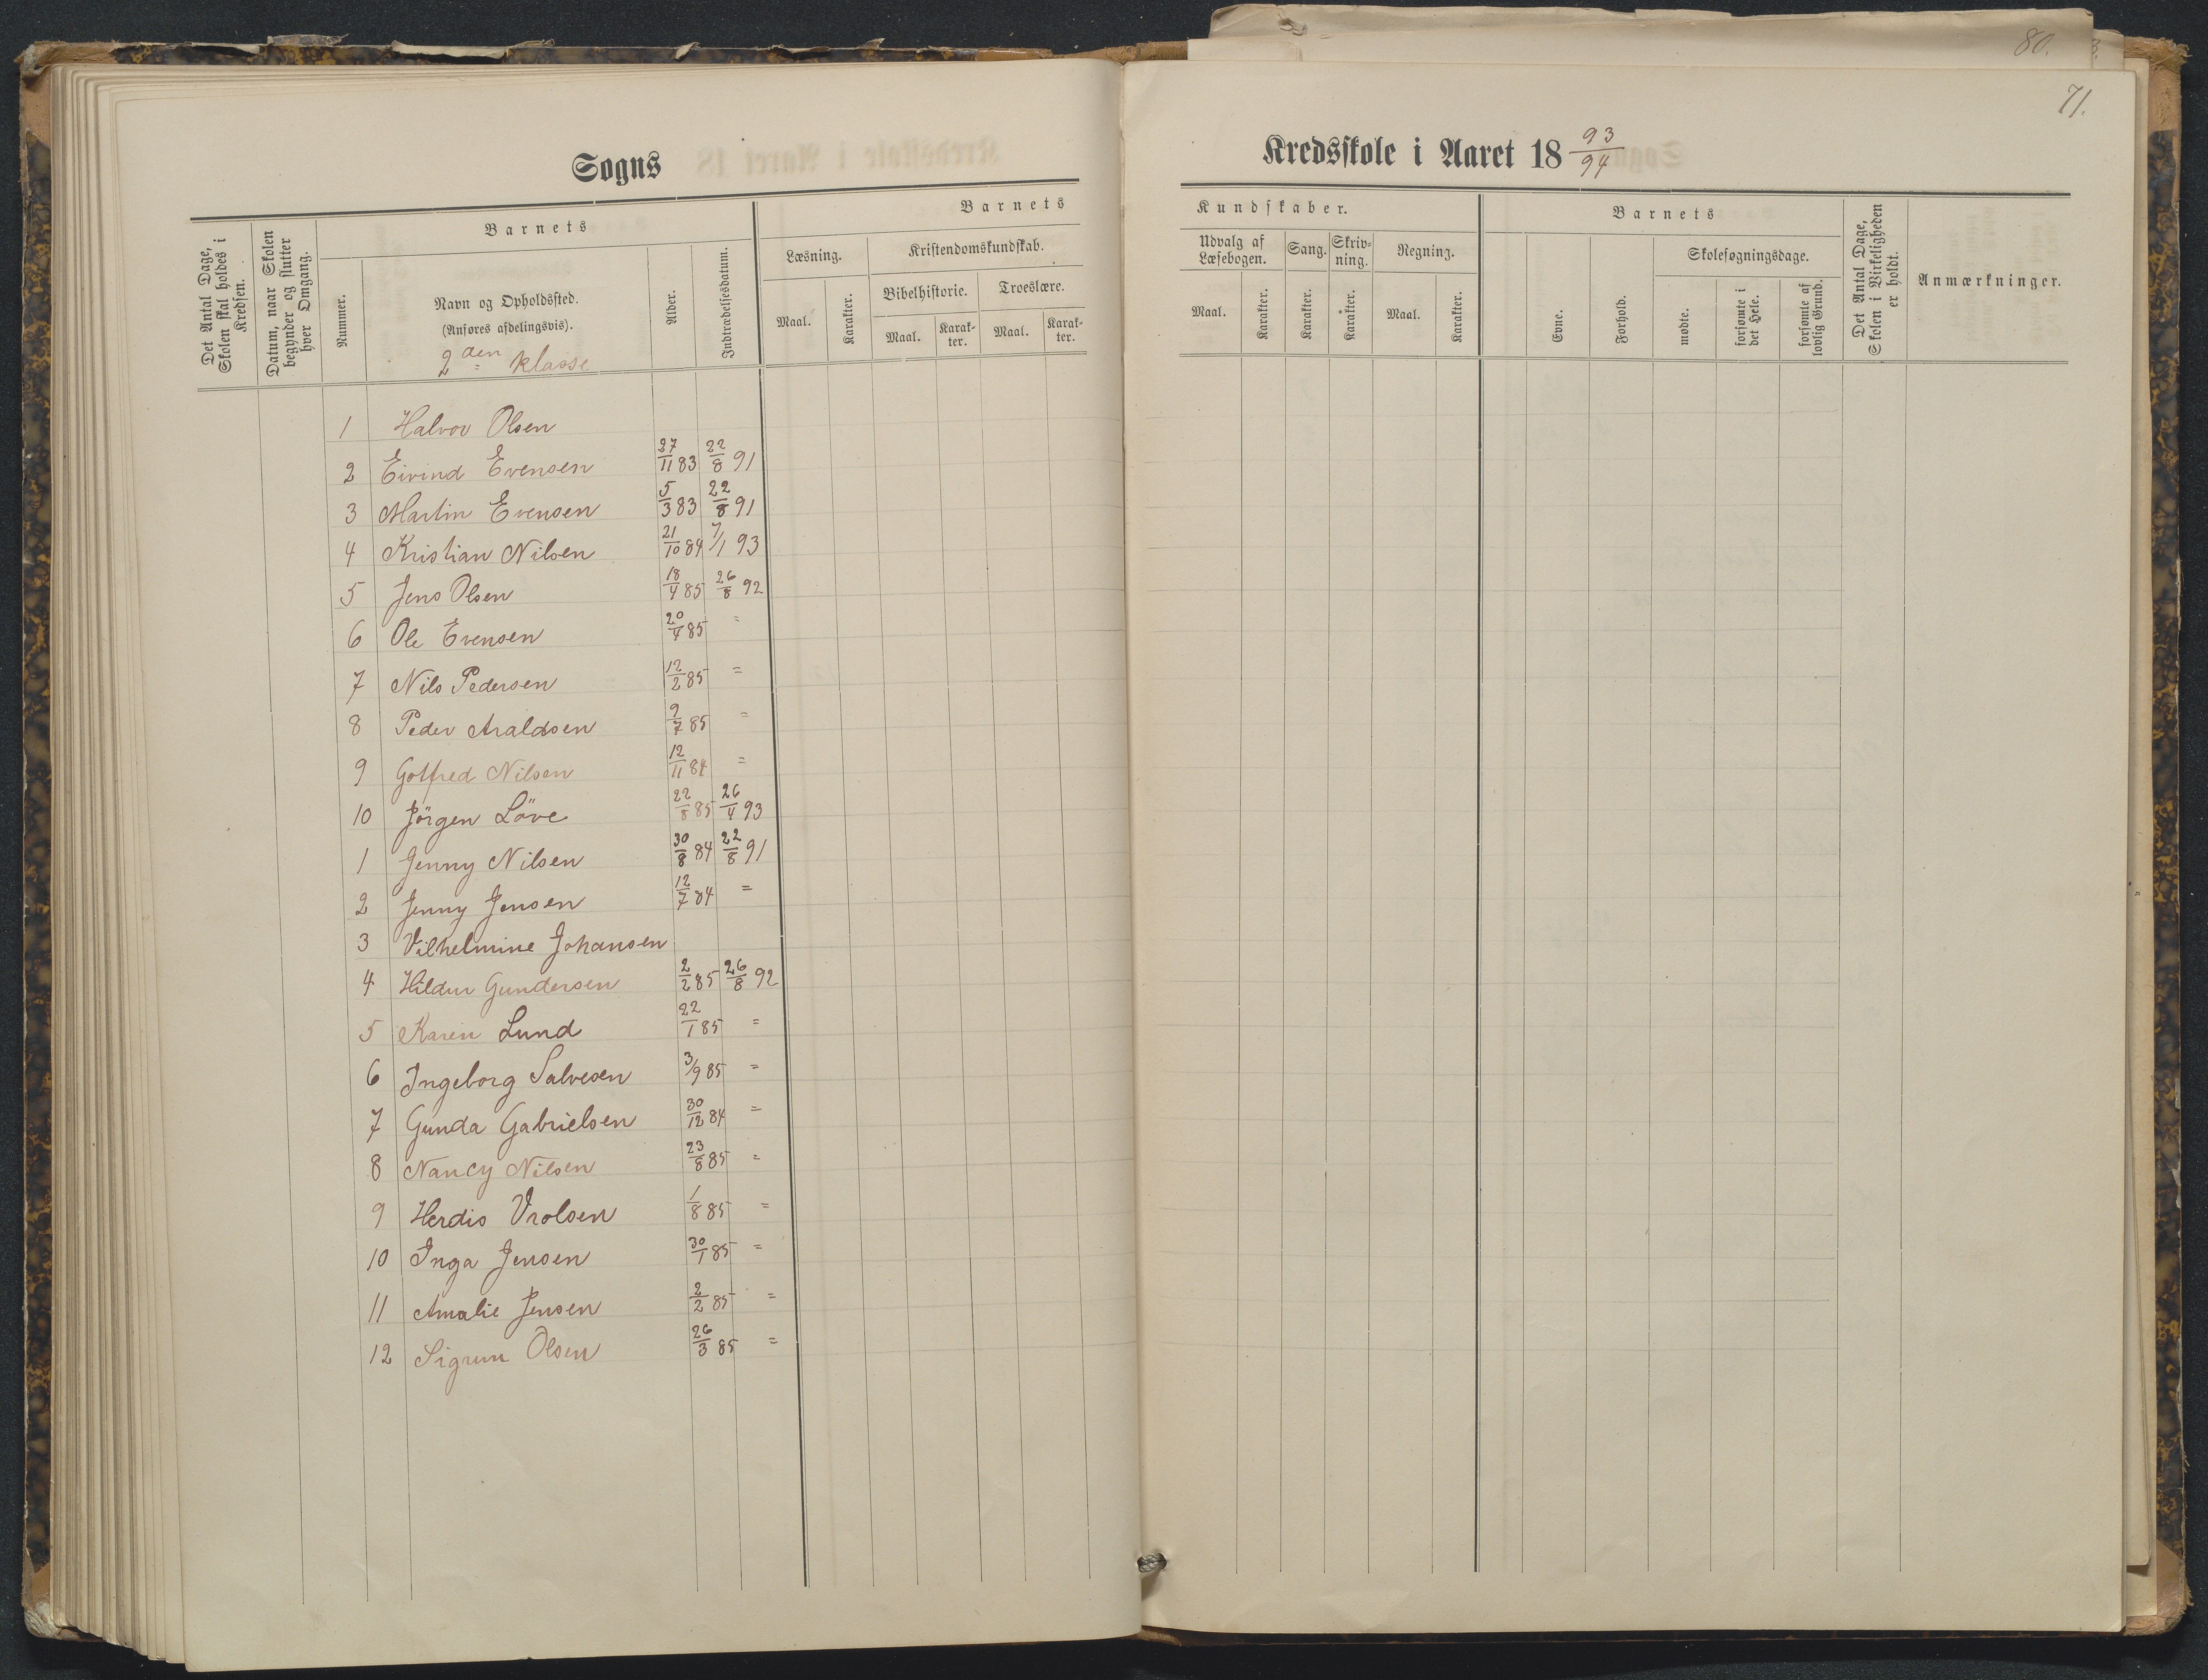 80.
71.
Sogns
Kredsskole i Aaret 18 93/94
Det Antal Dage, Skolen skal holdes i Kredsen.
Datum, naar Skolen begynder og slutter hver Omgang.
Barnets
Nummer.
Navn og Opholdssted.
(Anføres afdelingsvis).
2den Klasse
Alder.
Indtrædelsesdatum.
Barnets
Læsning.
Maal.
Karakter.
Kristendomskundskab.
Bibelhistorie.
Maal.
Karak-
ter.
Troeslære.
Maal.
Karak-
ter.
Kundskaber.
Udvalg af
Læsebogen.
Maal.
Karakter.
Sang.
Karakter.
Skriv-
ning.
Karakter.
Regning.
Maal.
Karakter.
Barnets
Evne.
Forhold.
Skolesøgningsdage.
mødte.
forsømte i det Hele.
forsømte af lovlig Grund.
Det Antal Dage, Skolen i Virkeligheden er holdt.
Anmærkninger.
1 Halvor Olsen
2 Eivind Evensen 27/11 83 22/8 91
3 Martin Evensen 5/3 83 22/8 91
4 Kristian Nilsen 21/10 84 7/1 93
5 Jens Olsen 18/4 85 26/8 92
6 Ole Evensen 20/4 85 "
7 Nils Pedersen 12/2 85 =
8 Peder Araldsen 9/7 85 =
9 Gotfred Nilsen 12/11 84 =
10 Jörgen Löve 22/8 85 26/4 93
1 Jenny Nilsen 30/8 84 22/8 91
2 Jenny Jensen 12/7 84 =
3 Vilhelmine Johansen
4 Hildur Gundersen 2/2 85 26/8 92
5 Karen Lund 22/1 85 =
6 Ingeborg Salvesen 3/9 85 =
7 Gunda Gabrielsen 30/12 84 =
8 Nancy Nilsen 23/8 85 =
9 Herdis Vrolsen 1/8 85 =
10 Inga Jensen 30/1 85 =
11 Amalie Jensen 2/2 85 =
12 Sigrun Olsen 26/3 85 =